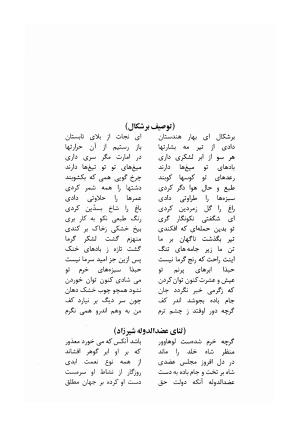 (توصیف برشکال)
برشکال ای بهار هندستان ای نجات از بلای تابستان
دادی از تیر مه بشارتها باز رستیم از آن حرارتها
هر سو از ابر لشکری داری در امارت مگر سری داری
بادهای تو میغ‌ها دارند میغ‌های تو تو تیغ‌ها دارند
رعدهای تو کوسها کوبند چرخ گویی همی که بکشوبند
طبع و حال هوا دگر کردی دشتها را همه شمر کردی
سبزه‌ها را طراوتی دادی عمرها را حلاوتی دادی
راغ را گل زمردین کردی باغ را شاخ بسدین کردی
ای شگفتی نکونگار گری رنگ طبعی نکو به کار بری
تو بدین حمله‌ای که افکندی بیخ خشکی زخاک بر کندی
تیر بگذشت ناگهان بر ما منهزم گشت لشکر گرما
تن ما زیر جامه‌های تنگ گشت تازه ز بادهای خنک
اینت راحت که رنج گرما نیست پس ازین جز امید سرما نیست
حبذا ابرهای پرنم تو حبذا سبزه‌های خرم تو
عیش و عشرت کنون توان کردن می شادی کنون توان خوردن
که زگرمی خبر نگردد جان نشود همچو چوب خشک دهان
جام باده بجوشد اندر کف چون سر دیگ بر نیارد کف
گرچه دور اوفتد ز چشم ترم من به وهم اندرو همی نگرم
(ثنای عضدالدوله شیرزاد)
گرچه خرم شده‌ست لوهاوور باشد آنکس که می خورد معذور
منظر شاه خلد را ماند که بر او ابر گوهر افشاند
شاه بر تخت و جام باده به دست از همه نوع نعمت ایدی هست
عضدالدوله آنکه دولت حق دست او کرده بر جهان مطلق